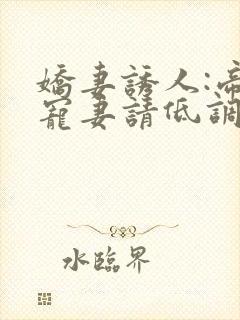 嬌妻誘人:帝
寵妻請低調
水臨界